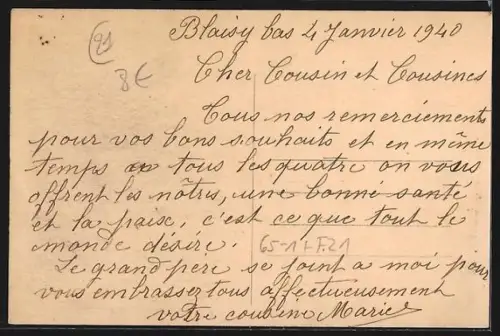 21
8€
Blaisy bas 4 Janvier 1940
Cher Cousin et Cousines
Tous nos remerciements
pour vos bons souhaits et en même
temps tous les quatre on vous
offrent les nôtres, une bonne santé
et la paix, c'est ce que tout le
monde désire.
65-1+F21
Le grand père se joint a moi pour
vous embrasser tous affectueusement
votre cousine Marie